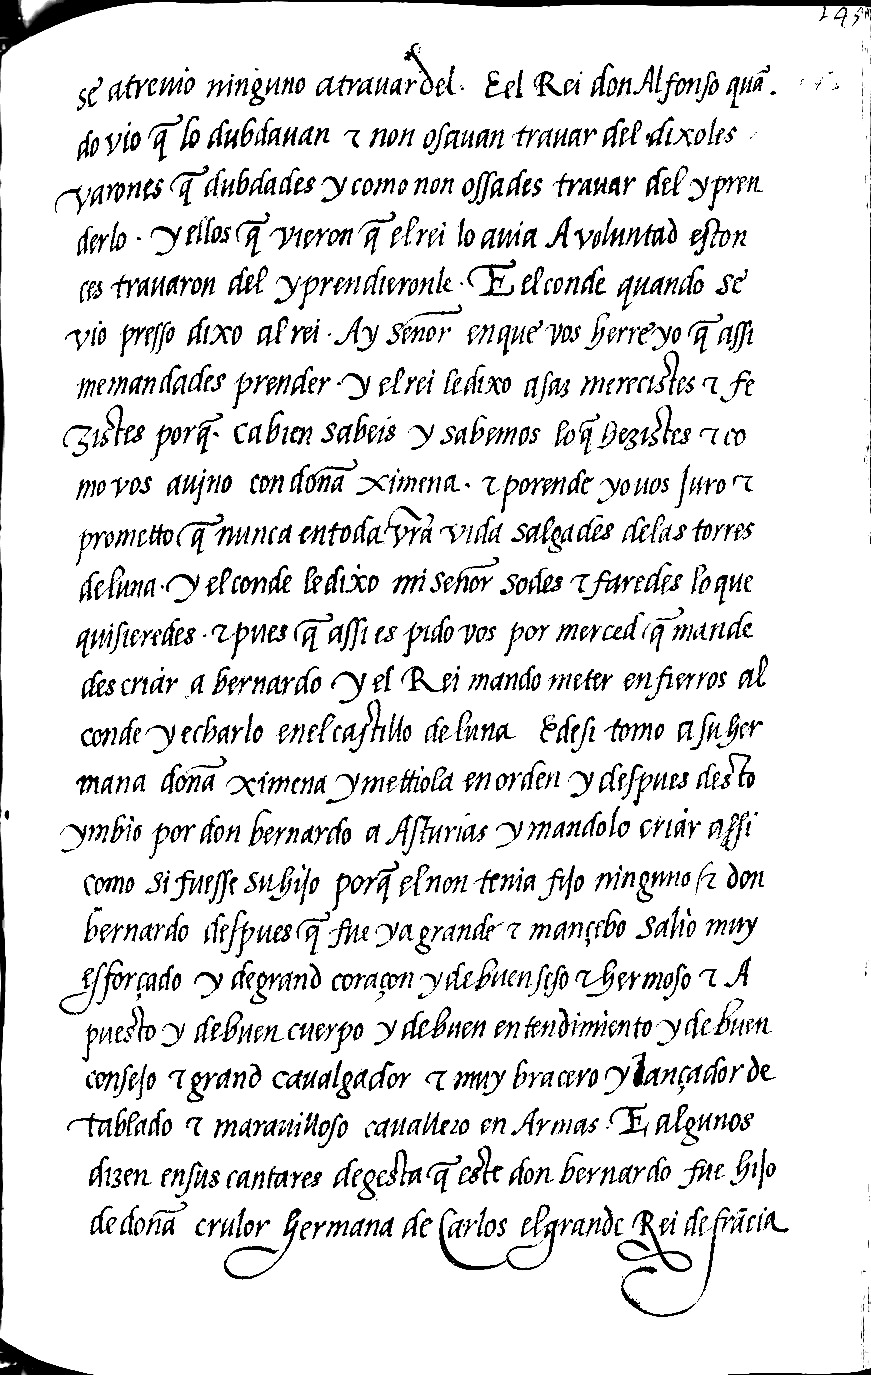 se atreuio ninguno atrauar del. E el Rei don Alfonso quã.
do vio q̃ lo dubdauan ⁊ non osauan trauar del dixoles
varones q̃ dubdades y como non ossades trauar del y pren
derlo. y ellos q̃ vieron q̃ el rei lo auia A voluntad eston
ces trauaron del y prendieronle. E el conde quando se
vio presso dixo al rei. Ay señor en que vos herre yo q̃ assi
me mandades prender. y el rei le dixo asaz merecistes ⁊ fe
zistes porq̃. ca bien sabeis y sabemos lo q̃ hezistes ⁊ co
mo vos auino con doña ximena. ⁊ porende yo uos Juro ⁊
prometto q̃ nunca en toda vr̃a vida salgades de las torres
de luna. y el conde le dixo mi señor sodes ⁊ faredes lo que
quisieredes. ⁊ pues q̃ assi es pido vos por merced q̃ mande
des criar a bernardo y el Rei mando meter en fierros al
conde y echarlo en el castillo de luna E desi tomo a su her
mana doña ximena y mettiola en orden y despues desto
ymbio por don bernardo a Asturias y mandolo criar assi
como si fuesse su hijo porq̃ el non tenia fijo ninguno ⁊ don
bernardo despues q̃ fue ya grande ⁊ mançebo salio muy
esforçado y de grand coraçon y de buen seso ⁊ hermoso ⁊ A
puesto y de buen cuerpo y de buen entendimiento y de buen
consejo ⁊ grand caualgador ⁊ muy bracero y lançador de
tablado ⁊ marauilloso cauallero en Armas. E algunos
dizen en sus cantares de gesta q̃ este don bernardo fue hijo
de doña crulor hermana de Carlos el grande Rei de frãcia